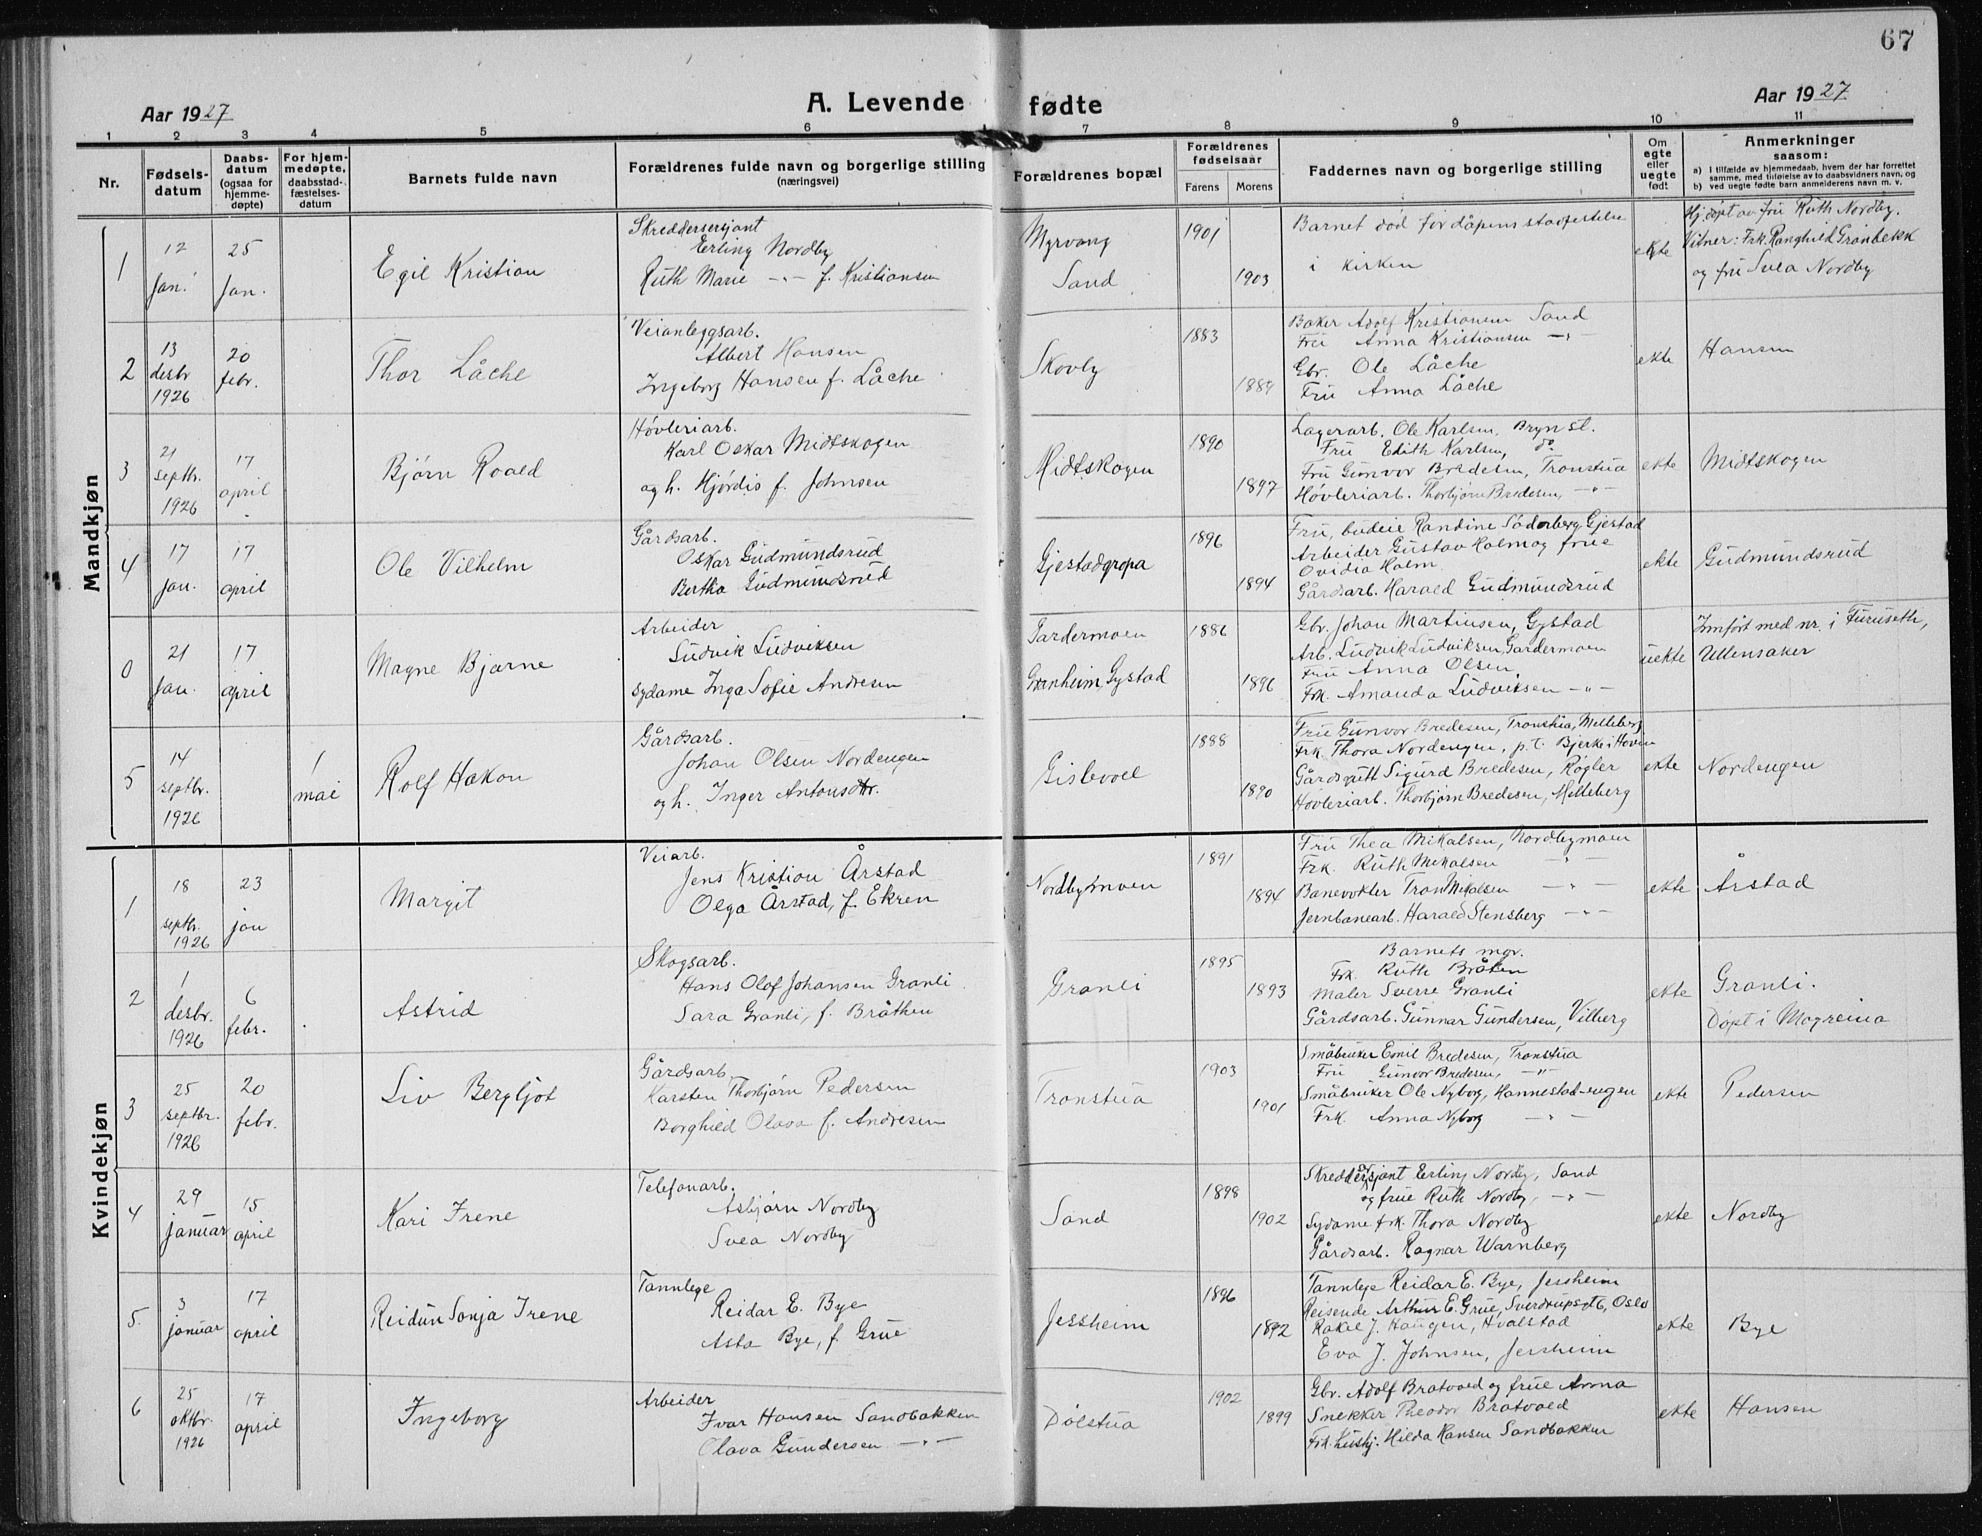 67
Aar 1927
A. Levende fødte
Aar 1927
1 2 3 4 5 6 7 8 9 10 11
Nr.
Fødsels-
datum
Daabs-
datum
(ogsaa for
hjemme-
døpte)
For hjem-
medøpte,
daabsstad-
fæstelses-
datum
Barnets fulde navn
Forældrenes fulde navn og borgerlige stilling
(næringsvei)
Forældrenes bopæl
Forældrenes
fødselsaar
Farens Morens
Faddernes navn og borgerlige stilling
Om
egte
eller
uegte
født
Anmerkninger
saasom:
a) I tilfælde av hjemmedaab, hvem der har forrettet
samme, med tilføielse av to daabsvidners navn, og
b) ved uegte fødte barn anmelderens navn m. v.
Mandkjøn
1
12
jan.
25
jan.
Egil Kristian
Skreddersersjant
Erling Nordby
Ruth Marie -"- f. Kristiansen
Myrvang
Sand
1901
1903
Barnet död för dåpens stadfestelse
i kirken
ekte
Hj.döpt av fru Ruth Nordby.
Vitner: Frk. Ranghild Grønbekk
og fru Svea Nordby
2
13
desbr
1926
20
febr.
Thor Låche
Veianleggsarb.
Albert Hansen
Ingeborg Hansen f. Låche
Skovly
1883
1884
Baker Adolf Kristiansen Sand
Fru Anna Kristiansen -"-
Gbr. Ole Låche
Fru Anna Låche
ekte
Hansen
3
21
septbr.
1926
17
april
Bjørn Roald
Høvleriarb.
Karl Oskar Midtskogen
og h. Hjørdis f. Johnsen
Midtskogen
1890
1897
Lagerarb. Ole Karlsen, Bryn st.
Fru Edith Karlsen, do
Fru Gunvor Bredesen, Tronstua
Høvleriarb. Thorbjørn Bredesen, -"-
ekte
Midtskogen
4
17
jan.
17
april
Ole Vilhelm
Gårdsarb.
Oskar Gudmundsrud
Bertha Gudmundsrud
Gjestadgropa
1896
1894
Fru, budeie Randine Söderberg, Gjestad
Arbeider Gustav Holm og frue
Ovidia Holm
Gårdsarb. Harald Gudmundsrud
ekte
Gudmundsrud
0
21
jan.
17
april
Magne Bjarne
Arbeider
Ludvik Ludviksen
sydame Inga Sofie Andresen
Gardermoen
Granheim, Gystad
1886
1896
Gbr. Johan Martinsen, Gystad
Arb. Ludvik Ludviksen, Gardermoen
Fru Anna Olsen
Frk. Amanda Ludviksen -"-
uekte
Innført med nr. i Furuseth,
Ullensaker
5
14
septbr.
1926
1
mai
Rolf Hakon
Gårdsarb.
Johan Olsen Nordengen
og h. Inger Antonsdtr.
Gislevoll
1888
1890
Fru Gunvor Bredesen, Tronstua, Melleberg
Frk. Thora Nordengen, p.t. Bjerke i Hovin
Gårdsgutt Sigurd Bredesen, Røgler
Høvleriarb. Thorbjørn Bredesen, Melleberg
ekte
Nordengen
Kvindekjøn
1
18
septbr.
1926
23
jan
Margit
Veiarb.
Jens Kristian Årstad
Olga Årstad, f. Ekren
Nordbymoen
1891
1894
Fru Thea Mikalsen, Nordbymoen
Frk. Ruth Mikalsen -"-
Banevokter Tron Mikalsen -"-
Jernbanearb. Harald Stensberg -"-
ekte
Årstad
2
1
desbr.
1926
6
febr.
Astrid
Skogsarb.
Hans Olof Johansen Granli
Sara Granli, f. Bråthen
Granli
1895
1893
Barnets mor.
Frk. Ruth Bråten
Maler Sverre Granli
Gårdsarb. Gunnar Gundersen, Vilberg
ekte
Granli.
Døpt i Mogreina
3
25
septbr.
1926
20
febr.
Liv Bergljot
Gårdsarb.
Karsten Thorbjørn Pedersen
Borghild Olava f. Andresen
Tronstua
1903
1901
Småbruker Emil Bredesen, Tronstua
Fru Gunvor Bredesen, -"-
Småbruker Ole Nyborg, Hannestad-engen
Frk. Anna Nyborg -"-
ekte
Pedersen
4
29
januar
15
april
Kari Irene
Telefonarb.
Asbjørn Nordby
Svea Nordby
Sand
1898
1902
Skreddersersjant Erling Nordby, Sand
og frue Ruth Nordby, -"-
Sydame frk. Thora Nordby
Gårdsarb. Ragnar Warnberg
ekte
Nordby
5.
3
januar
17
april
Reidun Sonja Irene
Tannlege
Reidar E. Bye
Asta Bye, f. Grue
Jessheim
1896
1892
Tannlege Reidar E. Bye, Jessheim
Reisende Arthur E. Grue, Sverdrupsgt., Oslo
Rakel J. Haugen, Hvalstad
Eva J. Johnsen, Jessheim
ekte
Bye
6
25
oktbr.
1926
17
april
Ingeborg
Arbeider
Ivar Hansen Sandbakken
Olava Gundersen -"-
Dølstua
1902
1899
Gbr. Adolf Bratvold og frue Anna
Snekker Theodor Bratvold
Frk. hushj. Hilda Hansen Sandbakken
ekte
Hansen